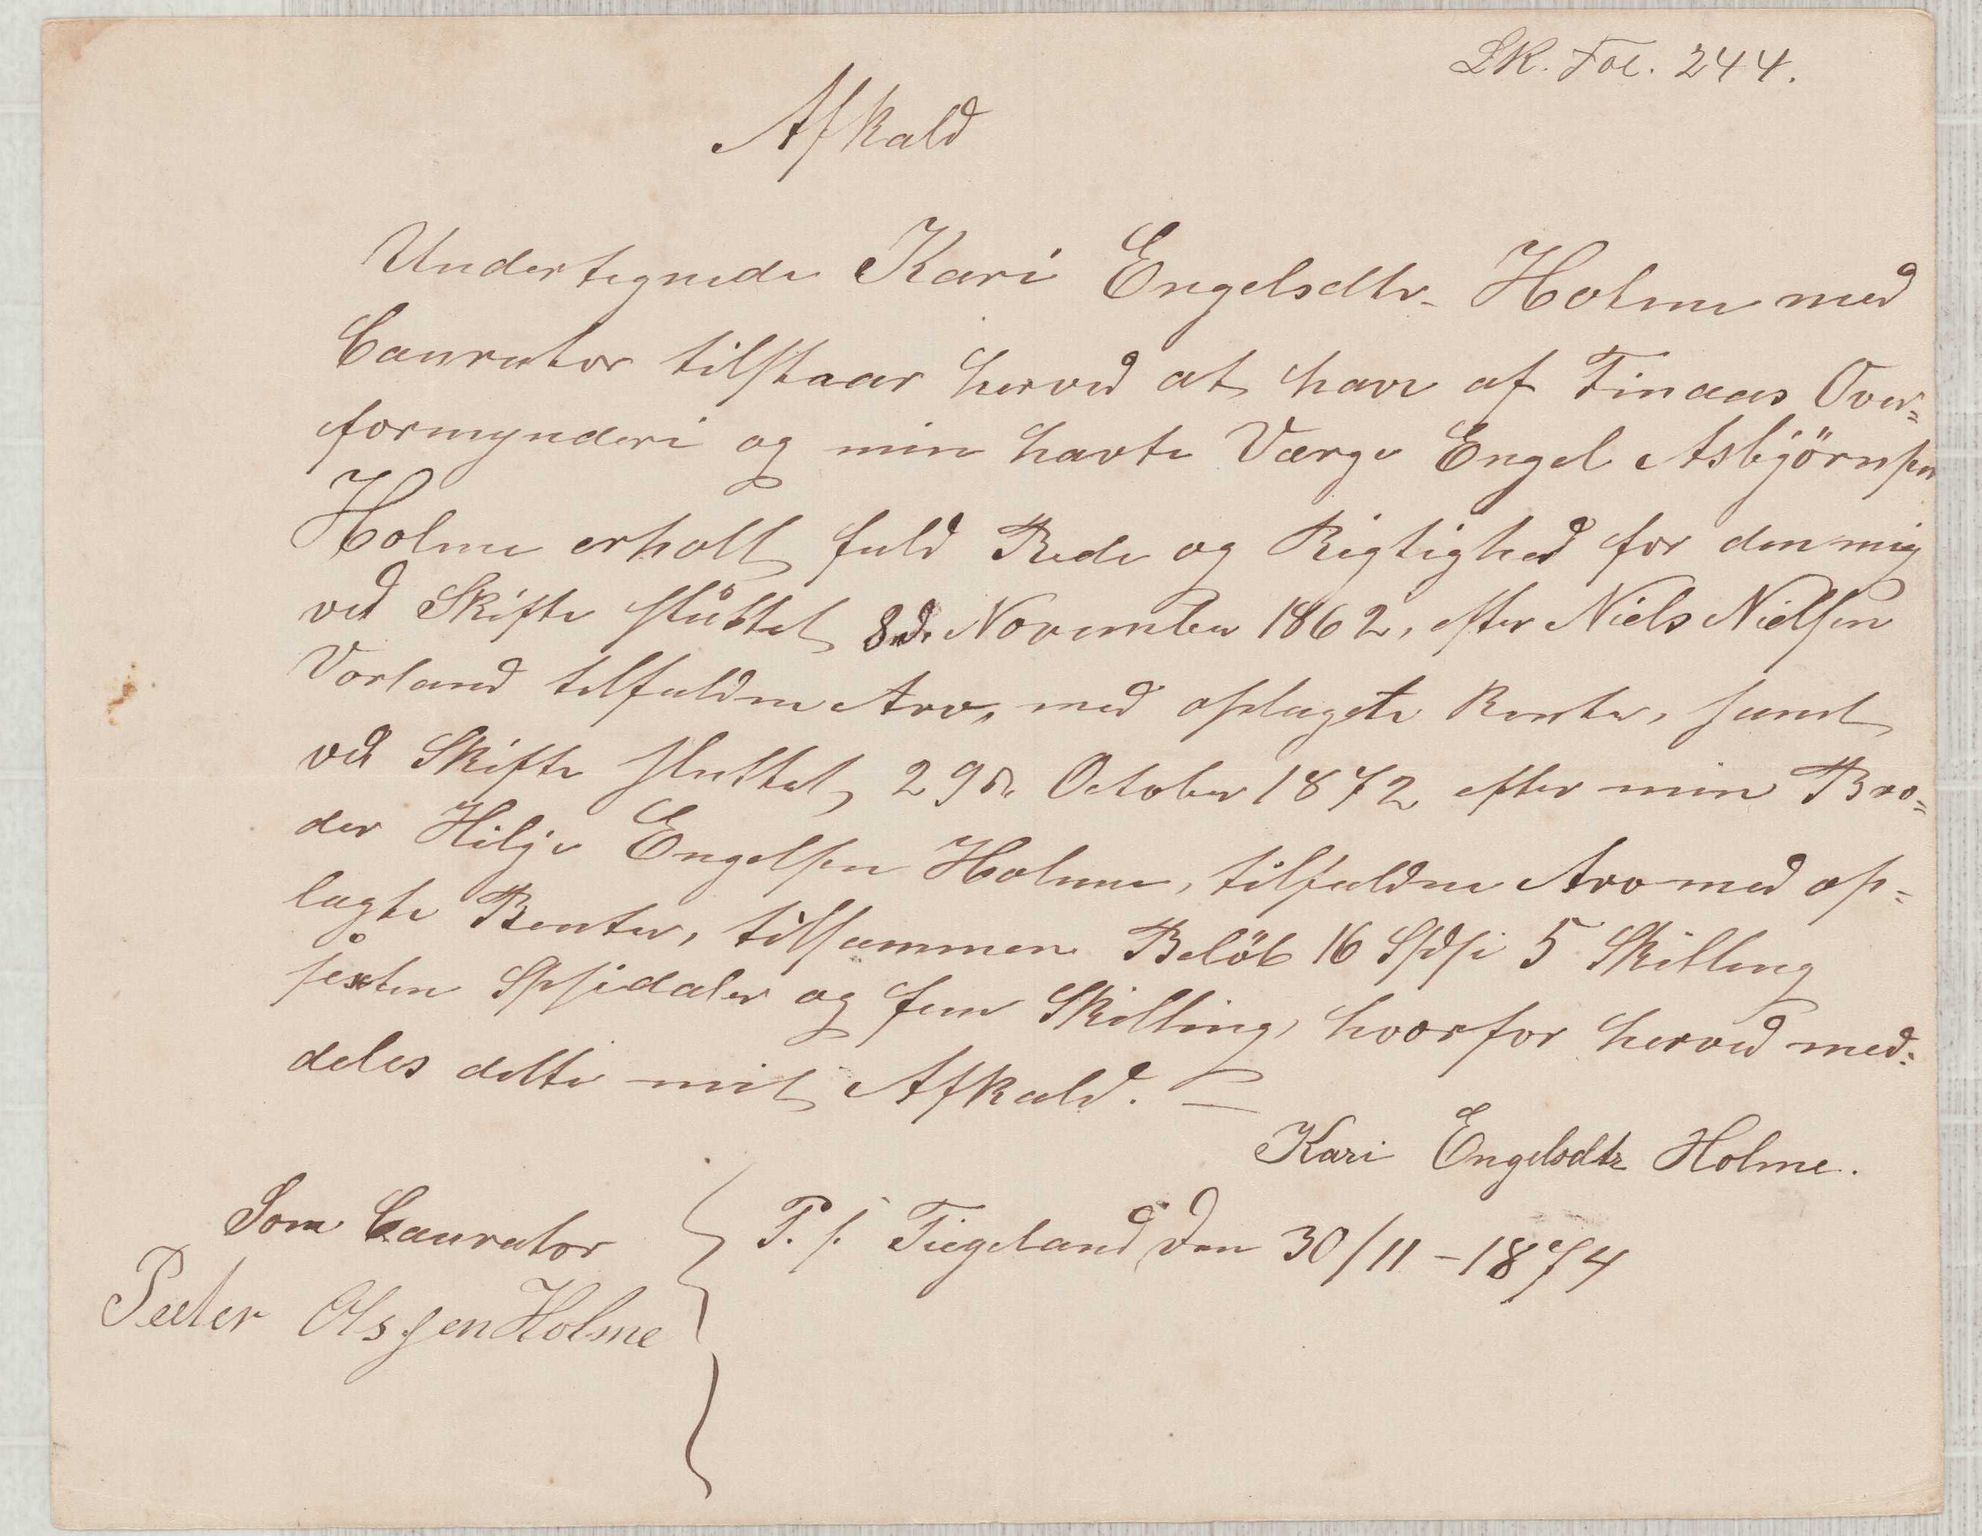 LK. Fol. 244.
Afkald
Undertegnede Kari Engelsdtr. Holme med
Caurator tilstaar herved at have af Finaas Over=
formynderi og min havte Værge Engel Asbjörnsen
Holme erholt fuld Rede og Rigtighed for den mig
ved Skifte sluttet 8de November 1862, efter Niels Nielsen
Vorland tilfaldne Arv, med oplagte Renter, samt
ved Skifte sluttet 29de October 1872 efter min Bro=
der Hilje Engelsen Holme, tilfaldne Arv med op=
lagte Renter, tilsammen Belöb 16 Spsi 5 Skilling
sexten Spsidaler og fem Skilling, hvorfor herved med=
deles dette mit Afkald. —
Kari Engelsdtr Holme.
Som Caurator
Peeter Olsşen Holme
P. t. Tiegeland den 30/11 – 1874